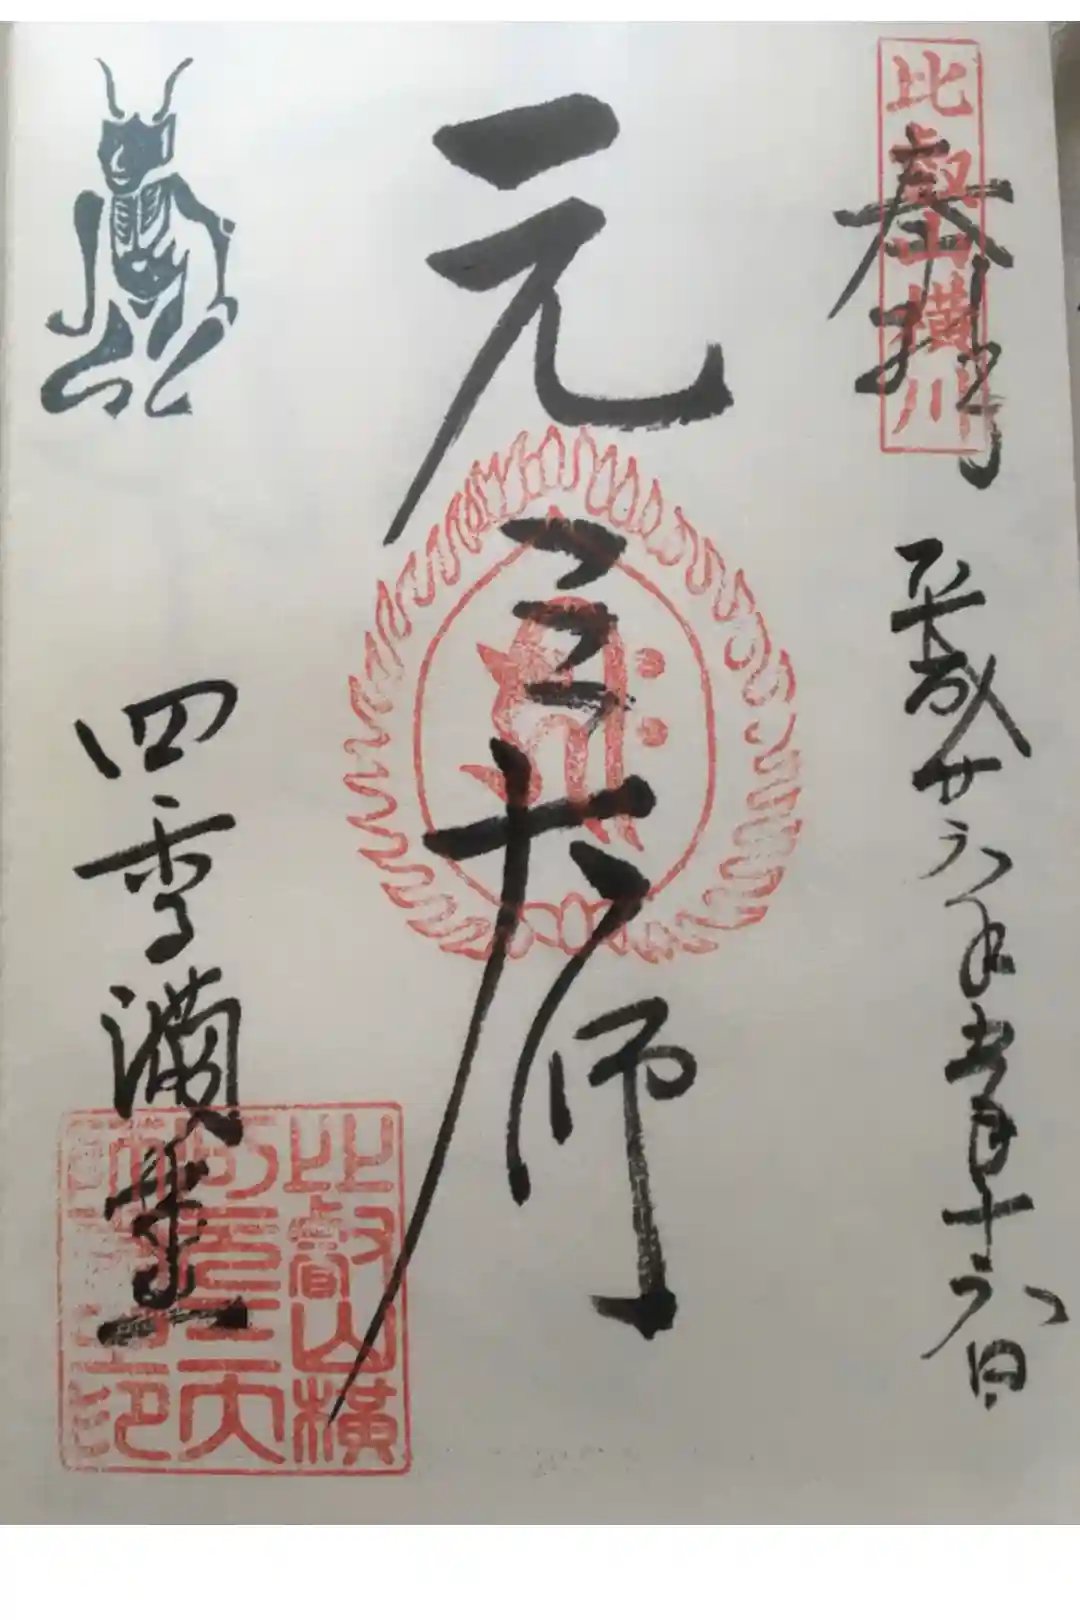 比叡山横川
奉拝
平成廿六年 月十六日
元三大師
四季講堂
比叡山横
川元三大
師 印